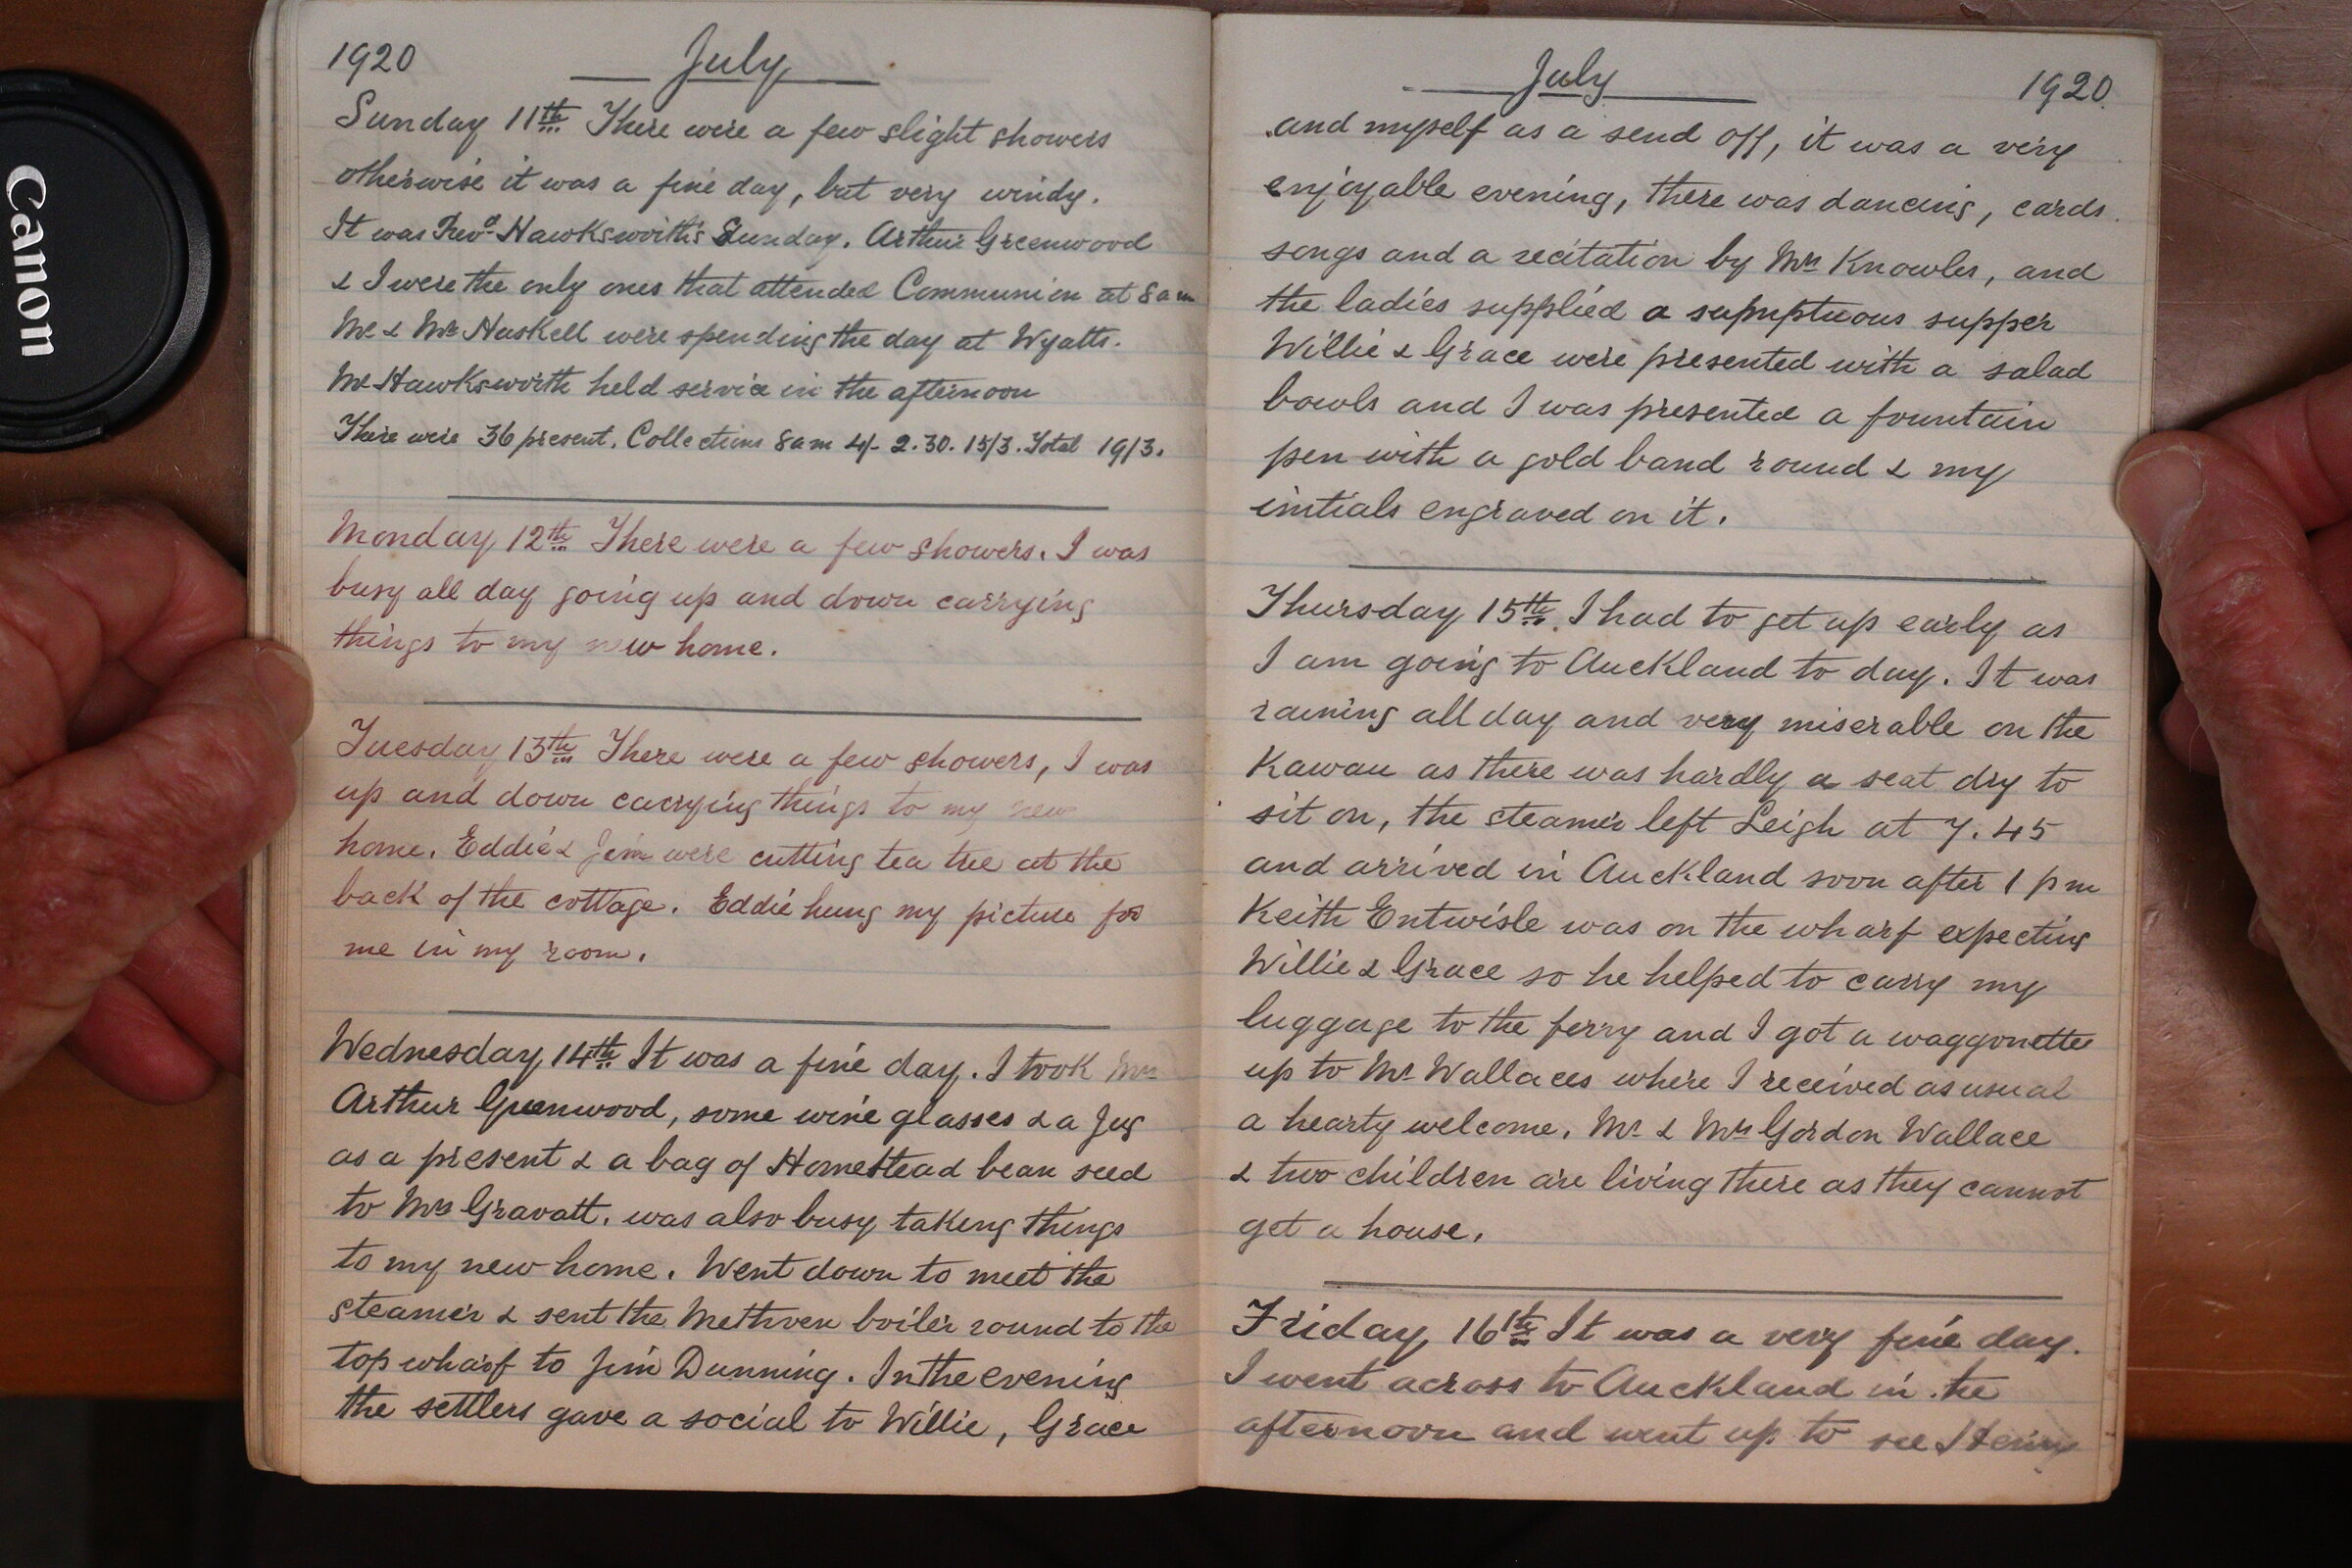 Canon
1920 July
Sunday 11th There were a few slight showers
otherwise it was a fine day, but very windy.
It was Revd Hawksworth's Sunday. Arthur Greenwood
& I were the only ones that attended Communion at 8 am
Mr & Mrs Haskell were spending the day at Wyatts.
Mr Hawksworth held service in the afternoon
There were 36 present. Collections 8 am 4/- 2.30. 15/3. Total 19/3.
Monday 12th There were a few showers. I was
busy all day going up and down carrying
things to my new home.
Tuesday 13th There were a few showers, I was
up and down carrying things to my new
home. Eddie & Jim were cutting tea tree at the
back of the cottage. Eddie hung my picture for
me in my room.
Wednesday 14th It was a fine day. I took Mrs
Arthur Greenwood, some wine glasses & a Jug
as a present & a bag of Homestead bean seed
to Mrs Gravatt. was also busy taking things
to my new home. Went down to meet the
steamer & sent the Methven boiler round to the
top wharf to Jim Dunning. In the evening
the settlers gave a social to Willie, Grace
July 1920.
and myself as a send off, it was a very
enjoyable evening, there was dancing, cards.
songs and a recitation by Mrs Knowles, and
the ladies supplied a supuptuous supper
Willie & Grace were presented with a salad
bowls and I was presented a fountain
pen with a gold band round & my
initials engraved on it.
Thursday 15th. I had to get up early as
I am going to Auckland to day. It was
raining all day and very miserable on the
Kawau as there was hardly a seat dry to
sit on, the steamer left Leigh at 7.45
and arrived in Auckland soon after 1 pm
Keith Entwisle was on the wharf expecting
Willie & Grace so he helped to carry my
luggage to the ferry and I got a waggonette
up to Mr Wallaces where I received as usual
a hearty welcome. Mr & Mrs Gordon Wallace
& two children are living there as they cannot
get a house.
Friday 16th It was a very fine day.
I went across to Auckland in the
afternoon and went up to see Henry